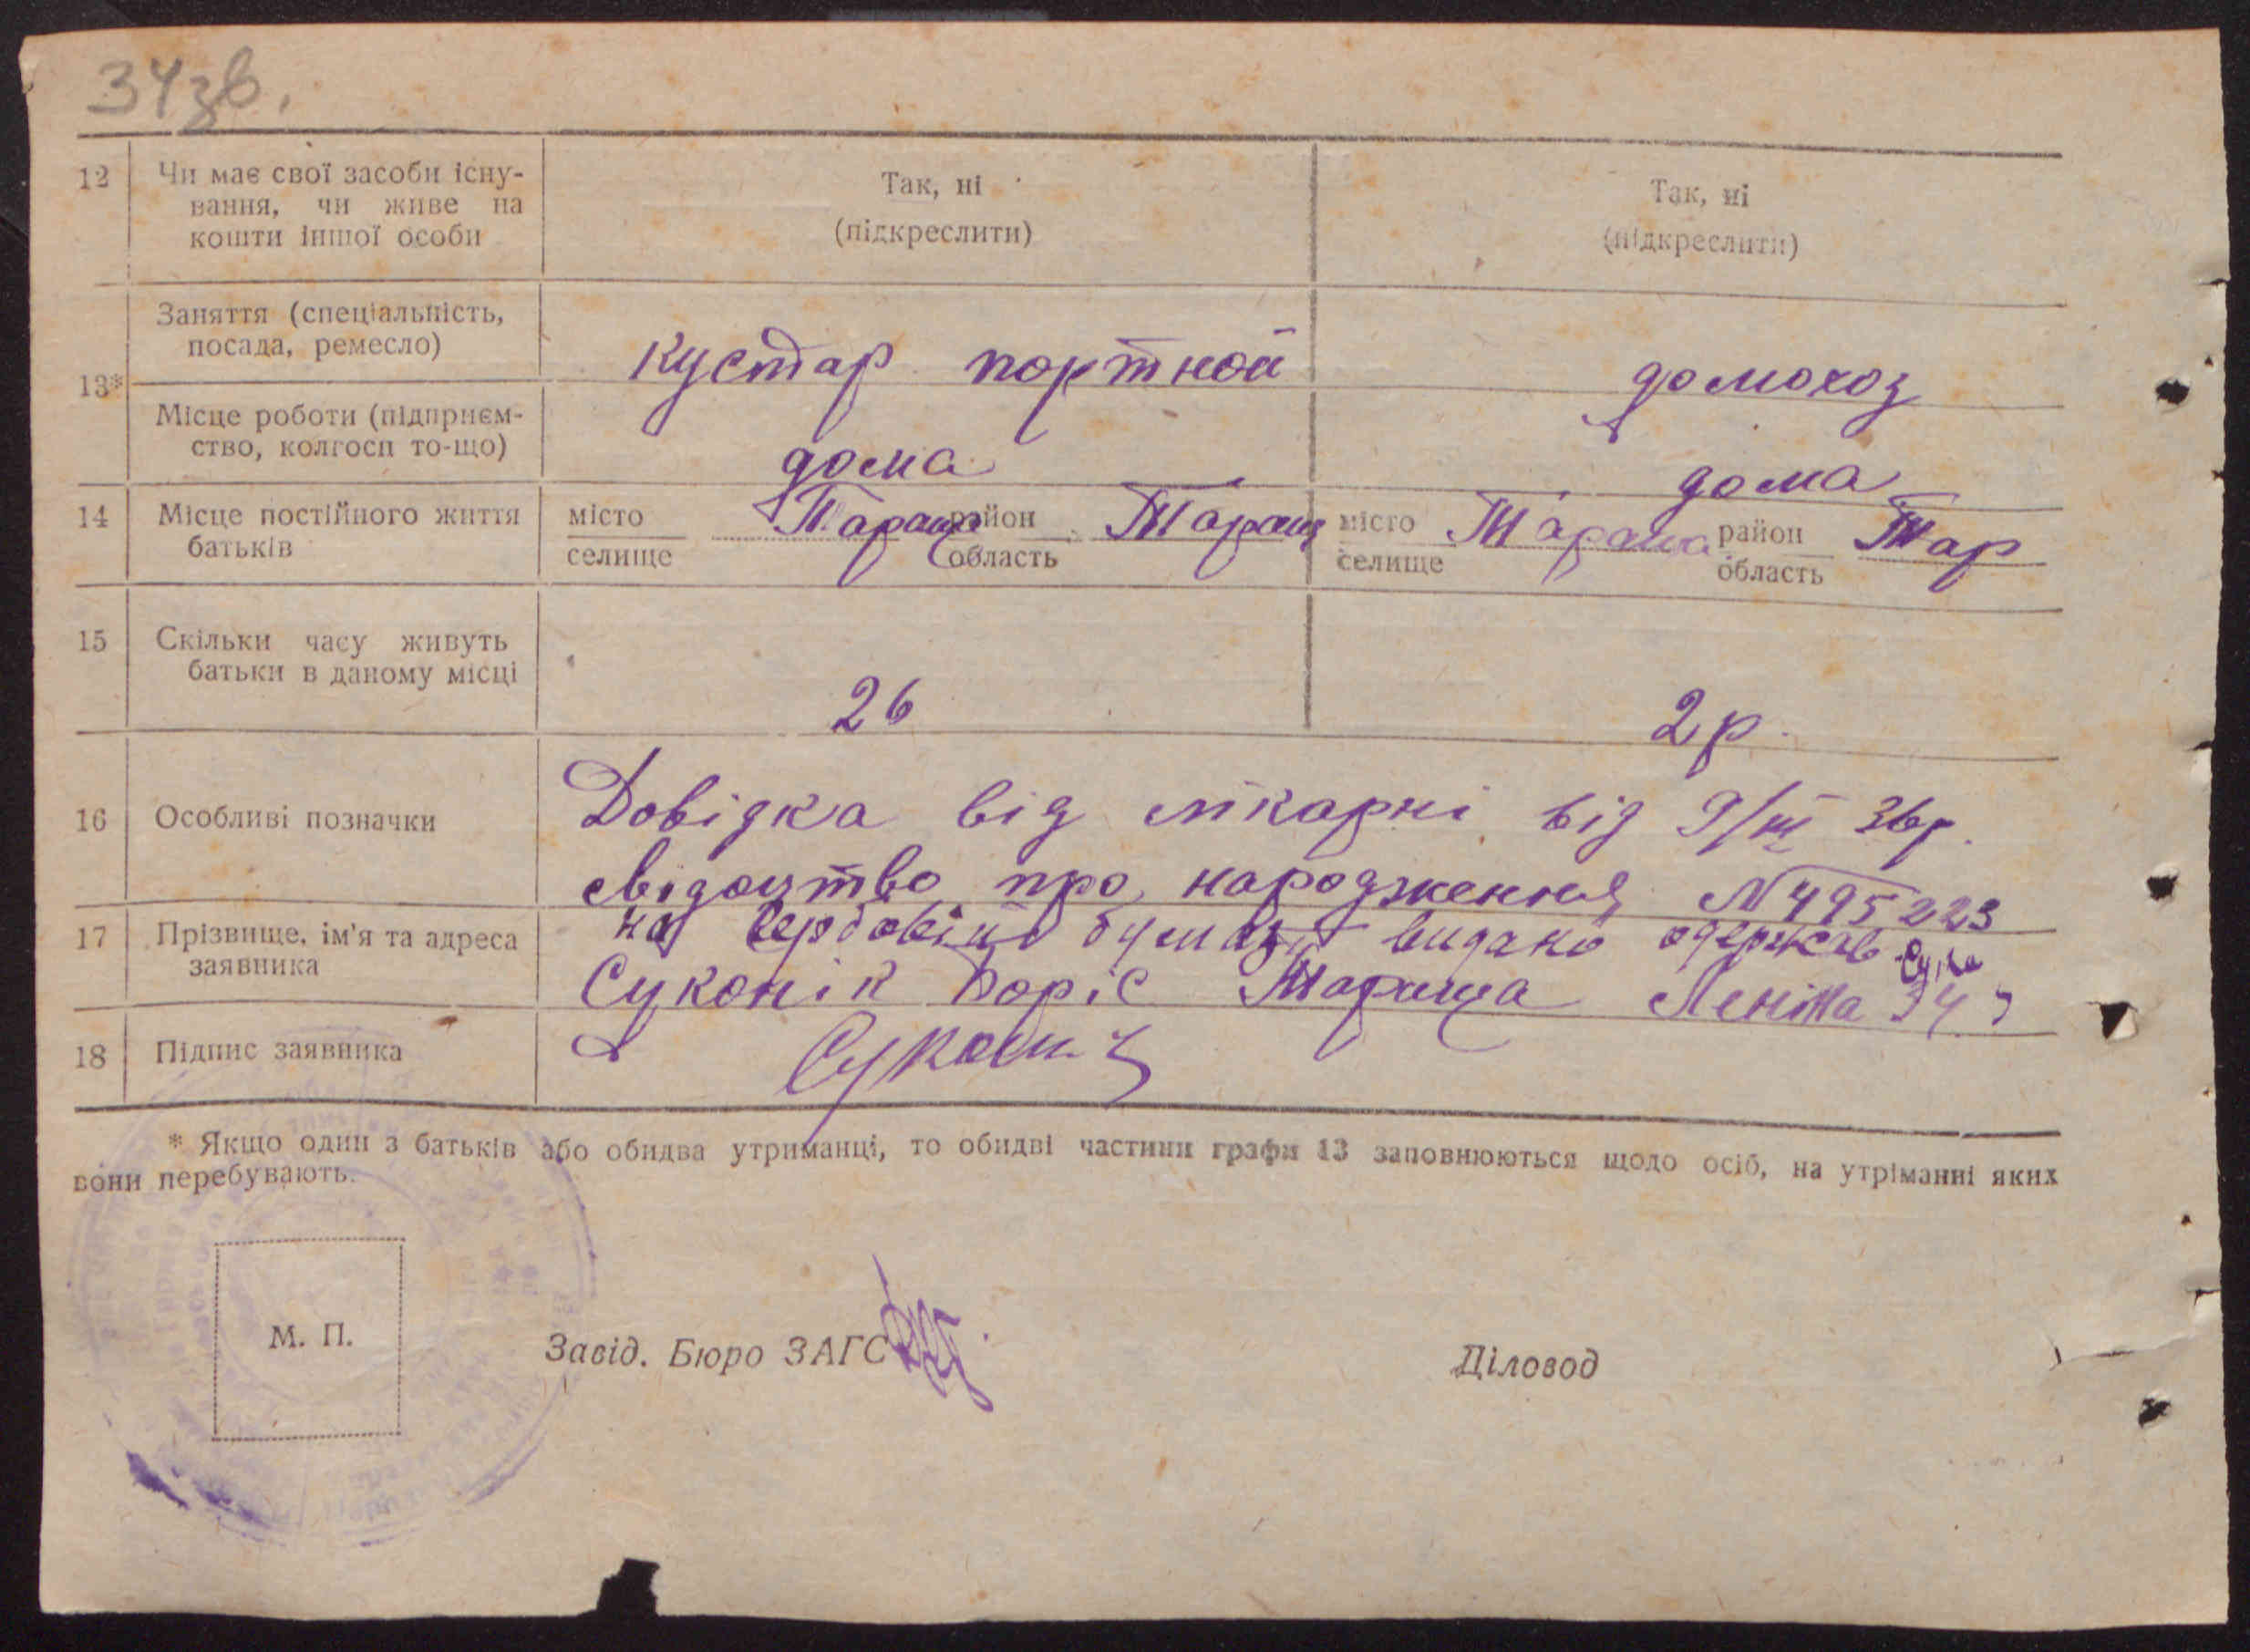 34зв.
12 Чи має свої засоби існу-
вання, чи живе на
кошти іншої особи
Так, ні
(підкреслити)
Так, ні
(підкреслити)
13*
Заняття (спеціальність,
посада, ремесло)
кустар портной
домохоз
Місце роботи (підприєм-
ство, колгосп то-що)
дома
дома
14 Місце постійного життя
батьків
місто Тараща район Таращ
селище область
місто Тараща район Тар
селище область
15 Скільки часу живуть
батьки в даному місці
26
2р.
16 Особливі позначки
Довідка від лікарні від 9/III 36р.
свідоцтво про народження N 495223
на бумазі видано одержав
17 Прізвище, ім'я та адреса
заявника
Суконік Боріс Тараща Леніна 34
18 Підпис заявника
* Якщо один з батьків або обидва утриманці, то обидві частини графи 13 заповнюються щодо осіб, на утріманні яких
вони перебувають.
М. П.
Завід. Бюро ЗАГС
Діловод